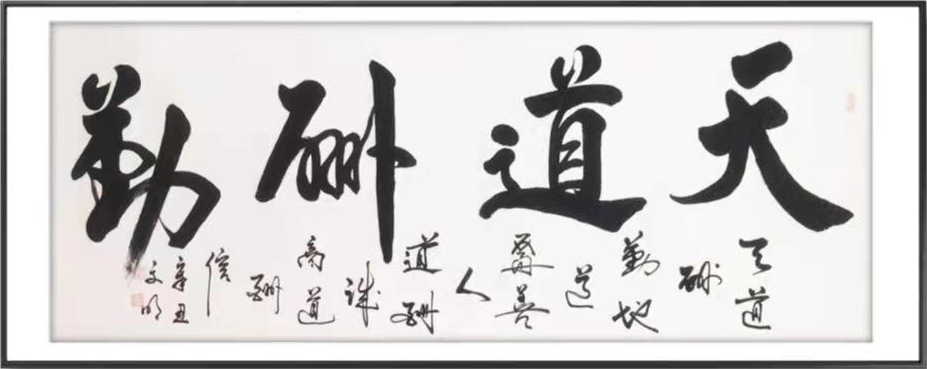 天道酬勤
天道
酬
勤地
道
酬善
人
道酬
诚
商道
酬
信
辛丑
文明